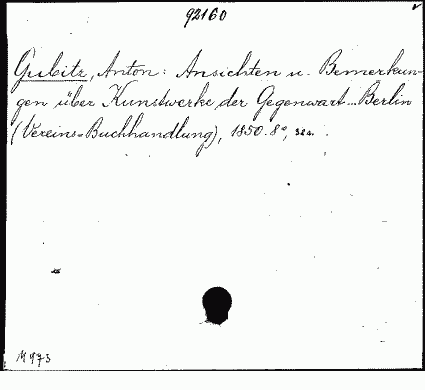 92160
Gubitz, Anton: Ansichten u. Bemerkun-
gen über Kunstwerke der Gegenwart... Berlin
(Vereins-Buchhandlung), 1850. 8°,
M 973